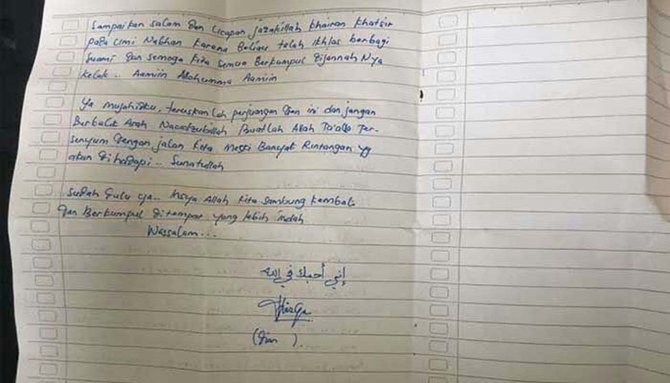 Sampaikan salam dan Ucapan jazakillah khairan khatsir
pada Umi Nabhan karena Beliau telah Ikhlas berbagi
Suami dan semoga kita semua Berkumpul dijannah Nya
Kelak.. Aamiin Allohumma Aamiin
Ya mujahidku, teruskanlah perjuangan dien ini dan jangan
Berbalik Arah Naudzubillah Buatlah Allah Ta'ala Ter-
senyum dengan jalan kita Meski Banyak Rintangan yg
akan di hadapi.. Sunatullah
Sudah dulu ya.. Insya Allah kita sambung kembali
dan Berkumpul ditempat yang lebih indah
Wassalam...
إني أحبك في الله
(Dian )